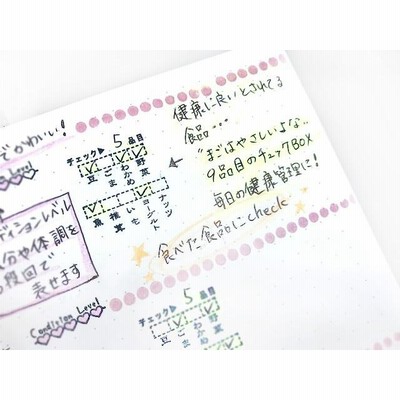 でかわいい!
Level
ディションレベル
分や体調を
表せます
チェック▶ 5 品目
豆 ごま わかめ 野菜
魚 椎茸 いも ヨーグルト ナッツ
健康に良いとされてる
食品…
“まごはやさしいよな..
9品目のチェックBOX
毎日の健康管理に!
食べた食品にcheck
Condition Level
チェック▶ 5 品目
豆 ごま わかめ 野菜